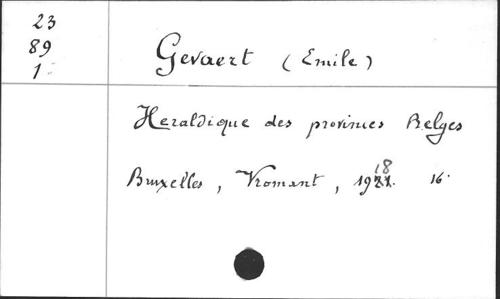 23
89
1
Gevaert (Emile)
Heraldique des provinces Belges
Bruxelles, Vromant, 1918. 16.